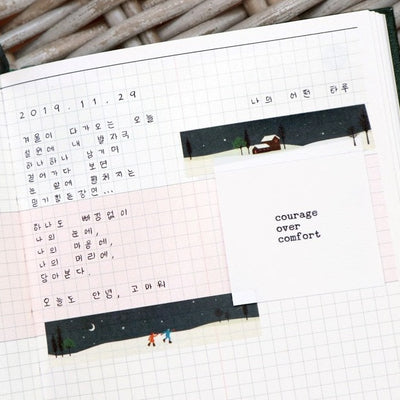 2019.11.29
나의 어떤 하루
겨울이 다가오는 오늘
설원에 내 발자국
하나하나 남기며
걸어가다 보면
눈 앞에 펼쳐지는
믿기힘든광경...
하나도 빠짐없이
나의 눈에,
나의 마음에,
나의 머리에,
담아본다.
오늘도 안녕, 고마워
courage
over
comfort